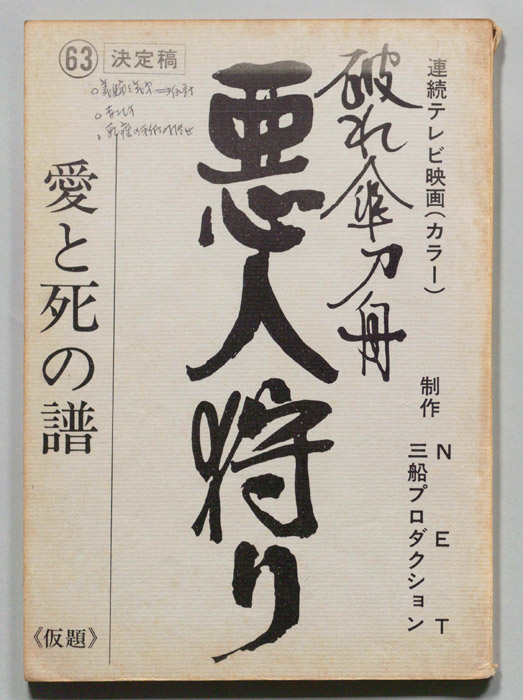 連続テレビ映画(カラー)
破れ傘刀舟
悪人狩り
制作 NET
三船プロダクション
㊿63 決定稿
愛と死の譜
《仮題》